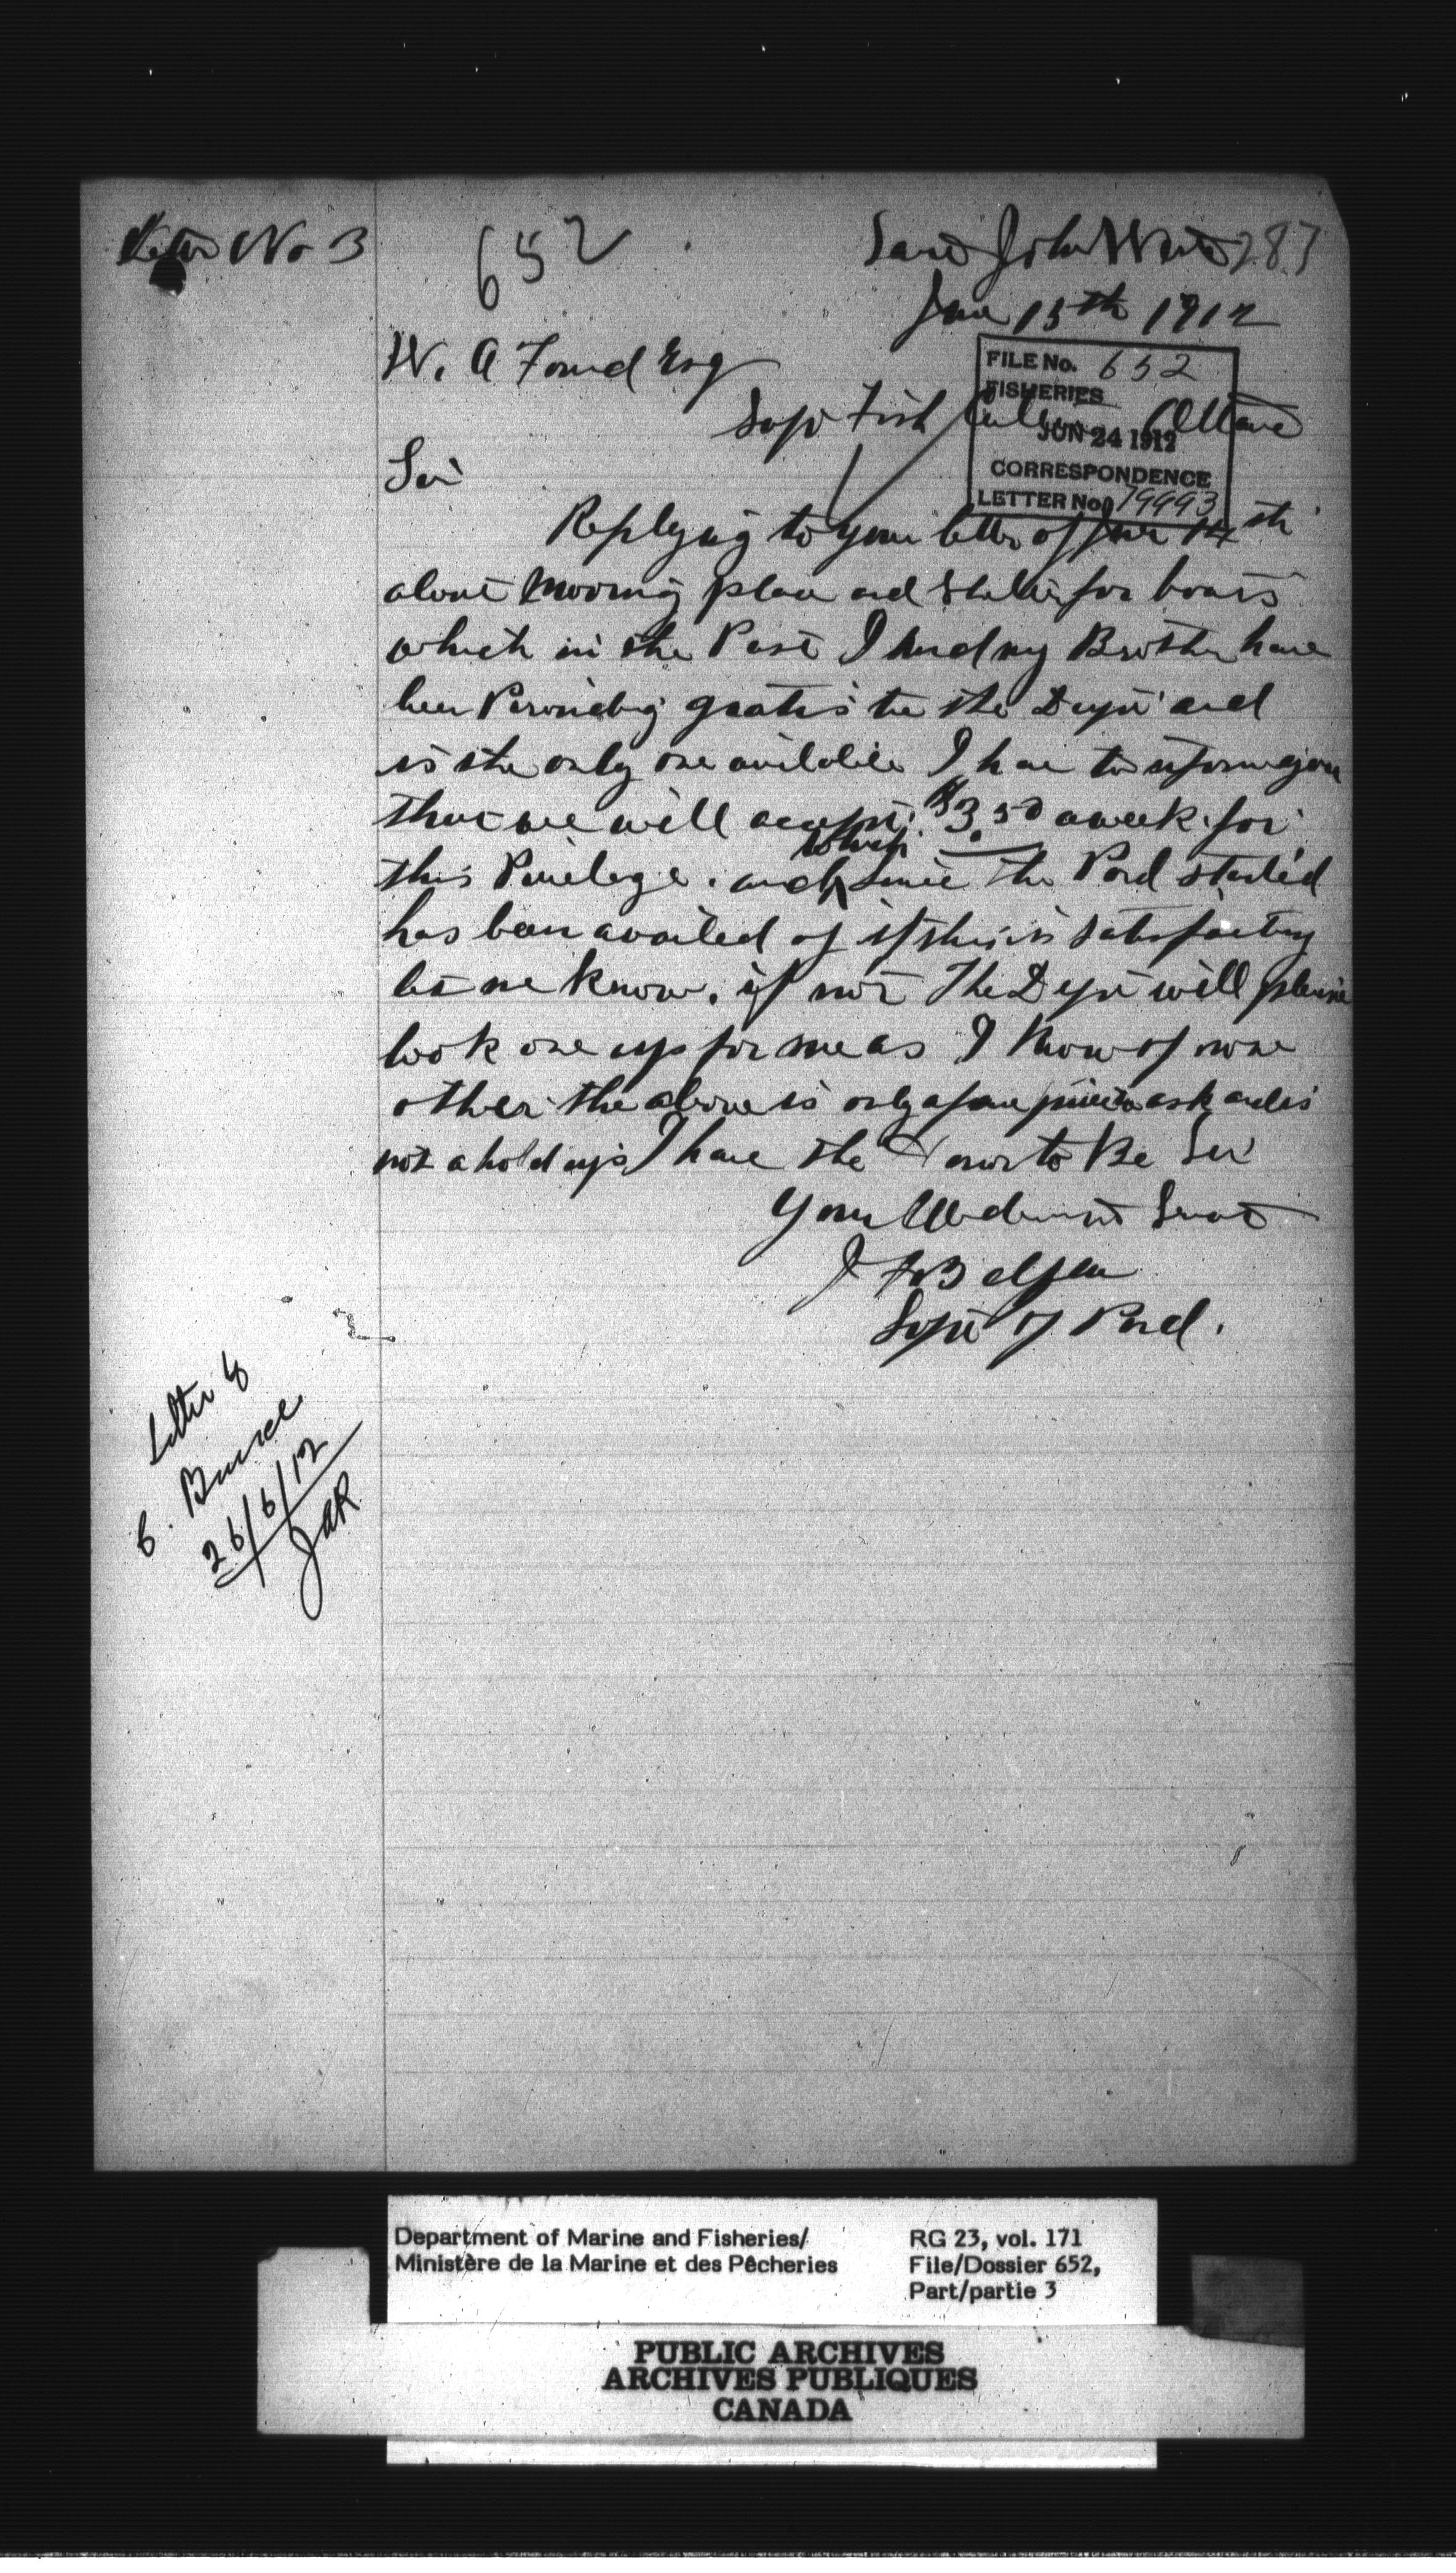 Letter No 3
652
Saint John West 283
June 15th 1912
W. A Found Esq
Supt Fish Culture Ottawa
FILE No. 652
FISHERIES
JUN 24 1912
CORRESPONDENCE
LETTER No. 79993
Sir
Replying to your letter of June 14th
about Mooring place and Shelter for boats
which in the Past I and my Brother have
been Providing gratis to the Dept and
is the only one available I have to inform you
that we will accept $3.50 a week for
this Privilege. and which Since the Pond started
has been availed of if this is satisfactory
let me know. if not The Dept will please
look one up for me as I Know of none
other the above is only a fair price to ask and is
not a hold up I have the Honor to Be Sir
Your Obedient Servt
J F Belyea
Supt of Pond.
Letter to
26/6/12
JAR
Department of Marine and Fisheries/
Ministère de la Marine et des Pêcheries
RG 23, vol. 171
File/Dossier 652,
Part/partie 3
PUBLIC ARCHIVES
ARCHIVES PUBLIQUES
CANADA